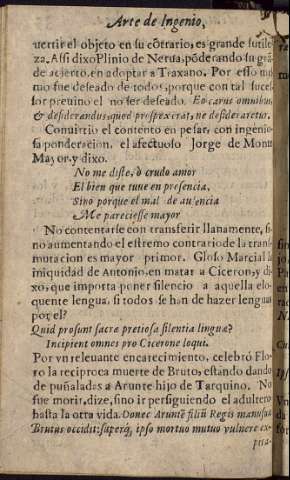 Arte de Ingenio,
uertir el objeto en su cõtrario, es grande sutile
za. Assi dixo Plinio de Nerua, põderando su grã
de acierto, en adoptar a Traxano. Por esso
mo fue deseado de todos, porque con tal sucef
sor preuino el no ser deseado. Eo carus omnibus
& desiderandus, quod prospexerat, ne desideraretur.
Conuirtio el contento en pesar, con ingenio
sa ponderacion, el afectuoso Jorge de Mont
Mayor, y dixo.
No me diste, ò crudo amor
El bien que tuue en presencia,
Sino porque el mal de ausencia
Me pareciesse mayor
No contentarse con transferir llanamente, si
no aumentando el estremo contrario de la trans
mutacion es mayor primor. Gloso Marcial la
iniquidad de Antonio, en matar a Ciceron, y di
xo, que importa poner silencio a aquella elo
quente lengua, si todos se han de hazer lenguas
por el?
Quid prosunt sacre pretiosa silentia linguæ?
Incipient omnes pro Cicerone loqui.
Por vn releuante encarecimiento, celebró Flo
ro la reciproca muerte de Bruto, estando dando
de puñaladas a Arunte hijo de Tarquino. No
fue morir, dize, sino ir persiguiendo el adultero
hasta la otra vida. Donec Aruntẽ filiũ Regis manu sua
Brutus occidit: superq́; ipso mortuo mutuo vulnere ex-
pira-